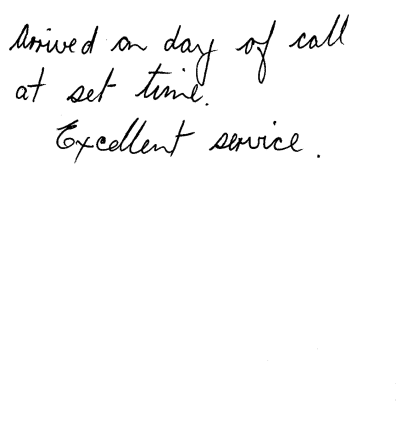 Arrived on day of call
at set time.
Excellent service.